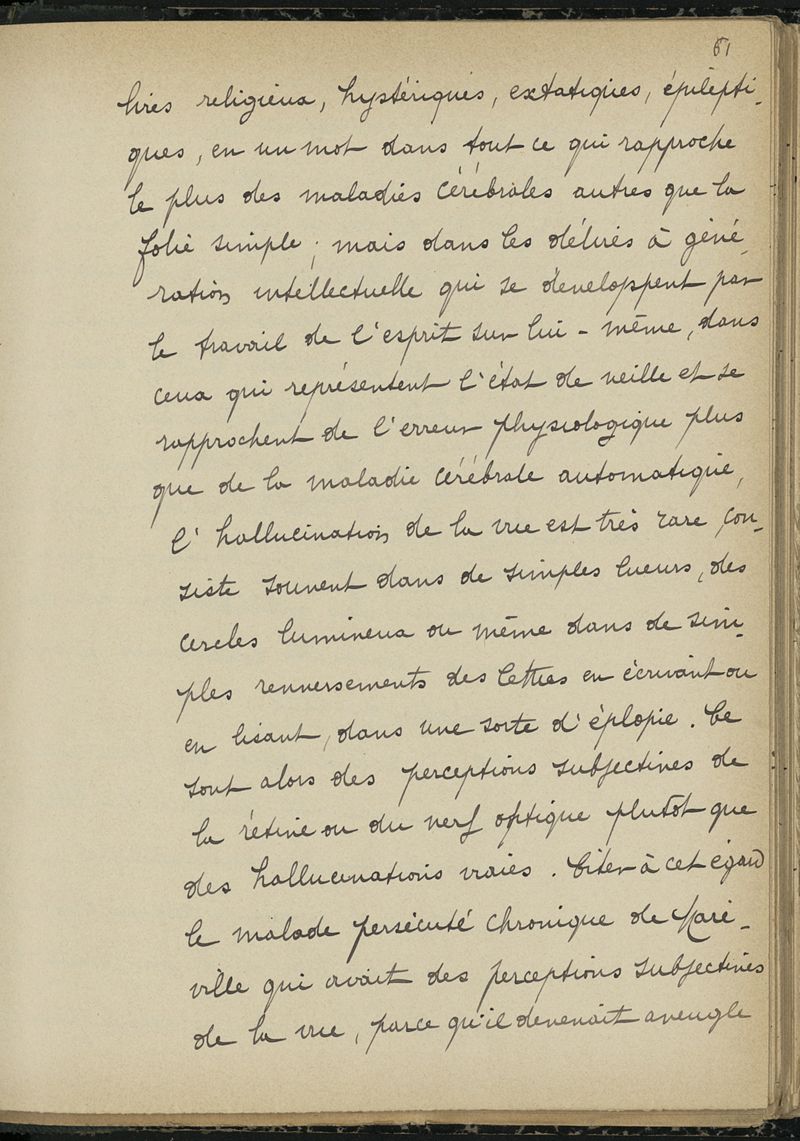 61
lires religieux, hystériques, extatiques, épilepti-
ques, en un mot dans tout ce qui rapproche
le plus des maladies cérébrales autres que la
folie simple; mais dans les délires à géné-
ration intellectuelle qui se développent par
le travail de l'esprit sur lui-même, dans
ceux qui représentent l'état de veille et se
rapprochent de l'erreur physiologique plus
que de la maladie cérébrale automatique,
l'hallucination de la vue est très rare, con-
siste souvent dans de simples lueurs, des
cercles lumineux ou même dans de sim-
ples renversements des lettres en écrivant ou
en lisant, dans une sorte d'éplopie. Ce
sont alors des perceptions subjectives de
la rétine ou du nerf optique plutôt que
des hallucinations vraies. Citer à cet égard
le malade persécuté chronique de Maré-
ville qui avait des perceptions subjectives
de la vue, parce qu'il devenait aveugle